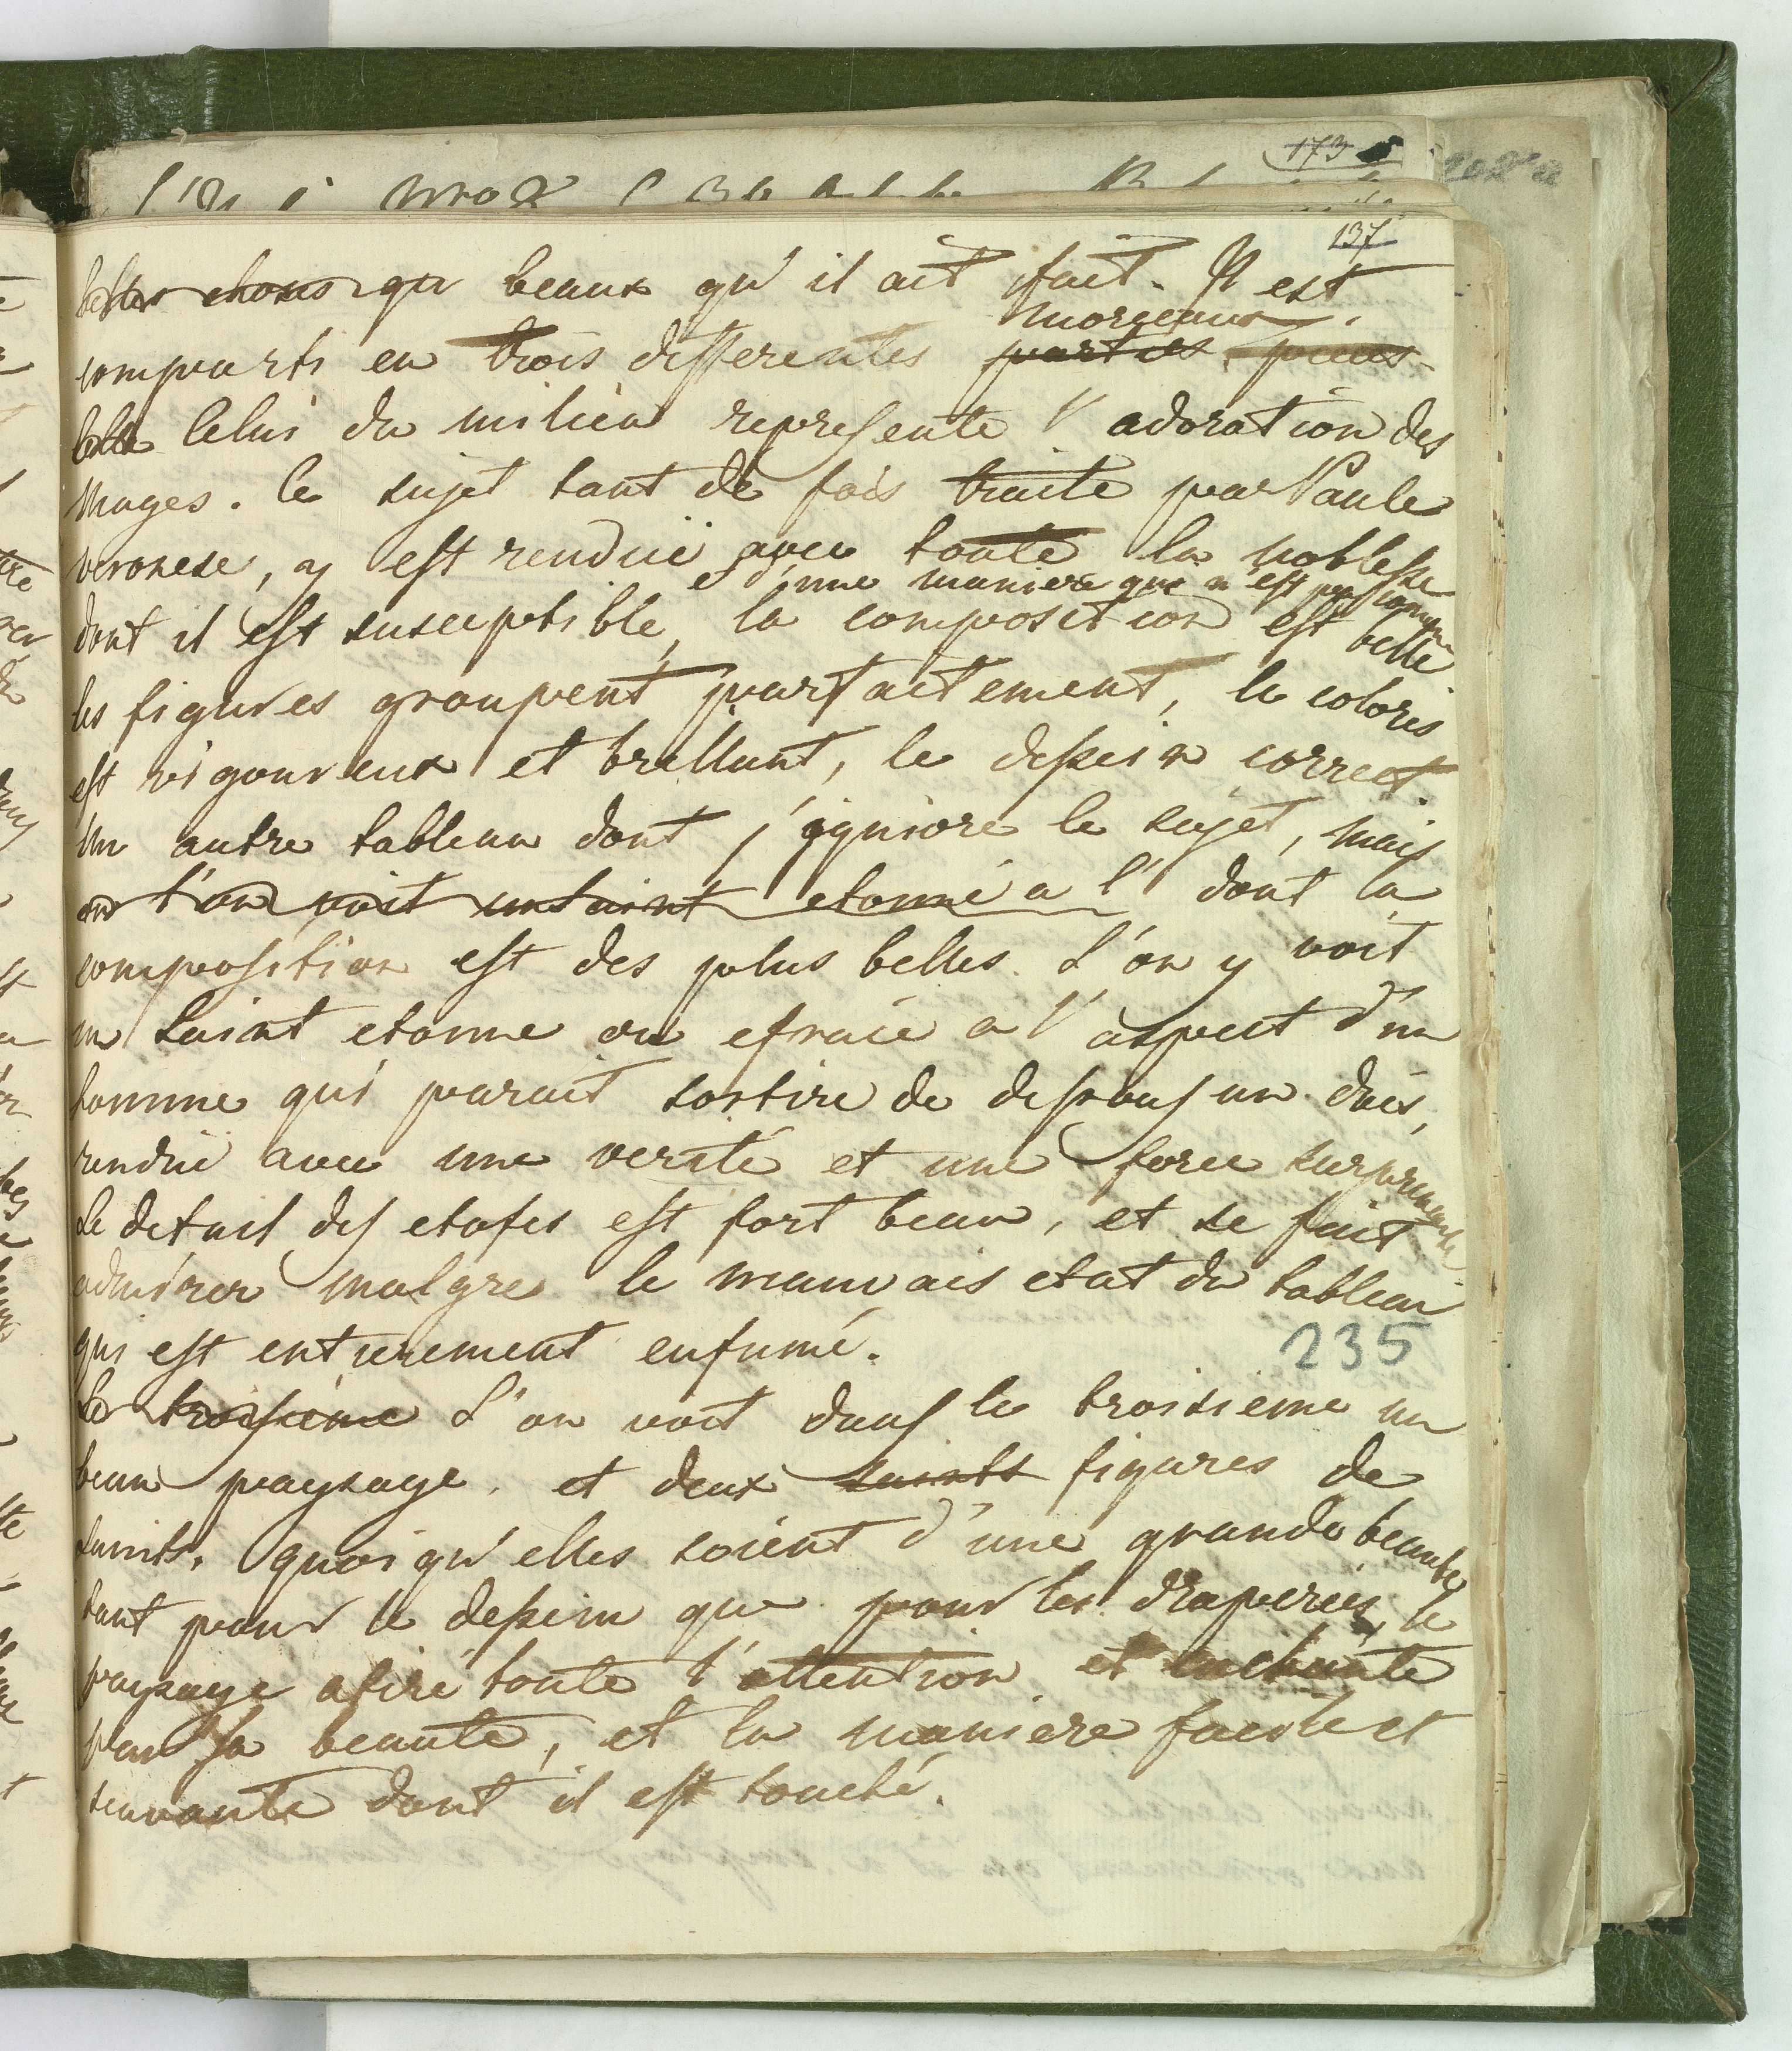 173
137
belles choses qu beaux qu'il ait fait. Il est
morceaux.
comparti en trois differentes parties pieces
Celui du milieu represente l'adoration des
Mages. Ce sujet tant de fois traite par Paule
veronese, y est rendue avec toute la noblesse
e d'une maniere que n'est pas comune
dont il est susceptible, la composition est belle
les figures groupent parfaitement, le coloris
est vigoureux et brillant, le dessein correct.
Un autre tableau dont j'igniore le sujet, mais
l'on voit un saint etonné a l' dont la
composition est des plus belles. L'on y voit
un Saint etonne ou efraié a l'aspect d'un
homme qui parait sortire de dessous un dais,
rendue avec une verité et une force surprenante
Le detail des etofes est fort beau, et se fait
admirer malgre le mauvais etat du tableau
qui est entierement enfumé.
235
Le troisieme L'on voit dans le troisieme un
beau paysage. et deux saints figures de
saints. quoiqu'elles soient d'une grande beaute
tant pour le dessein que pour les draperies, le
paysage atire toute l'attention et enchante
par sa beaute, et la maniere facile et
scavante dont il est touché.